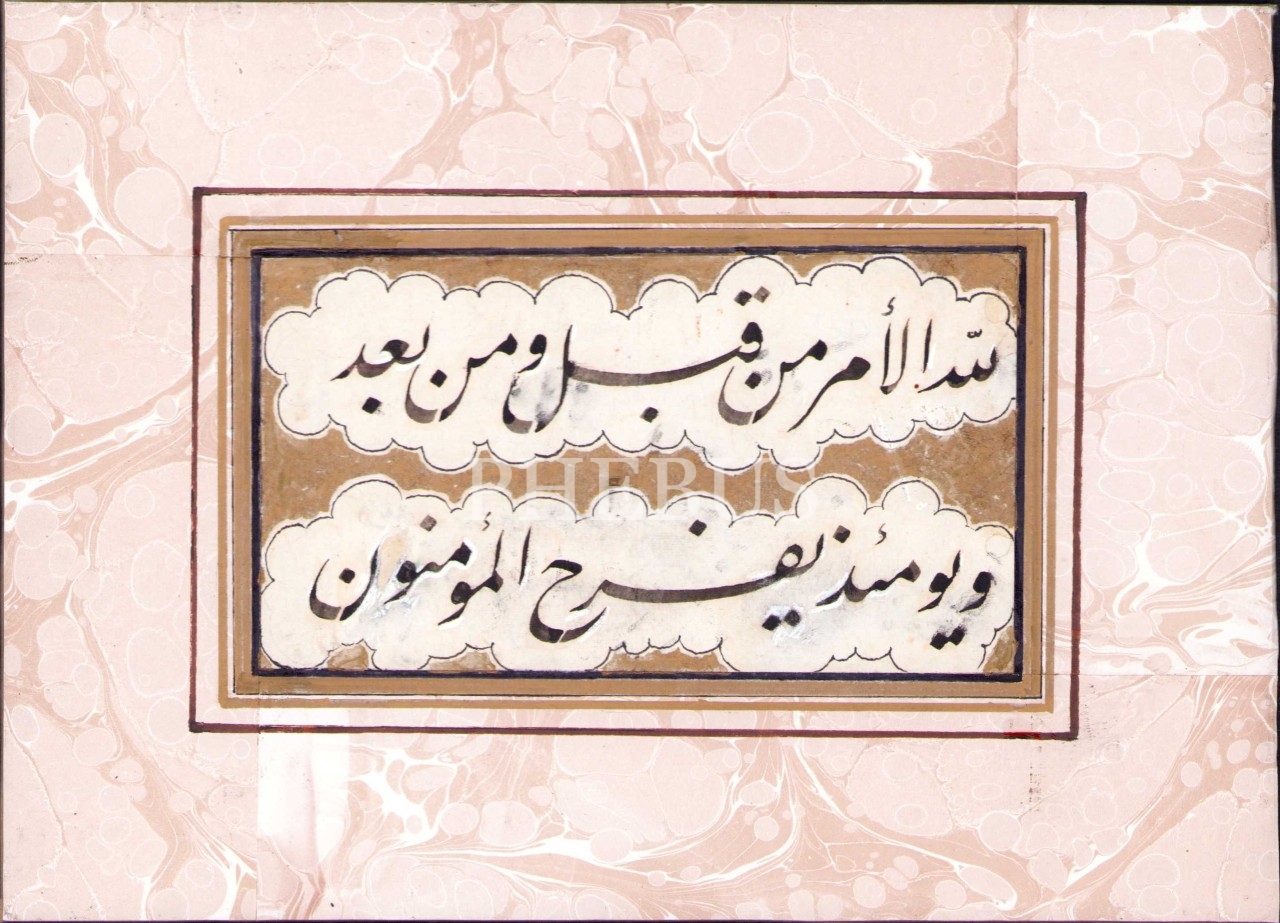 لله الأمر من قبل ومن بعد
ويومئذ يفرح المؤمنون
PHEBUS